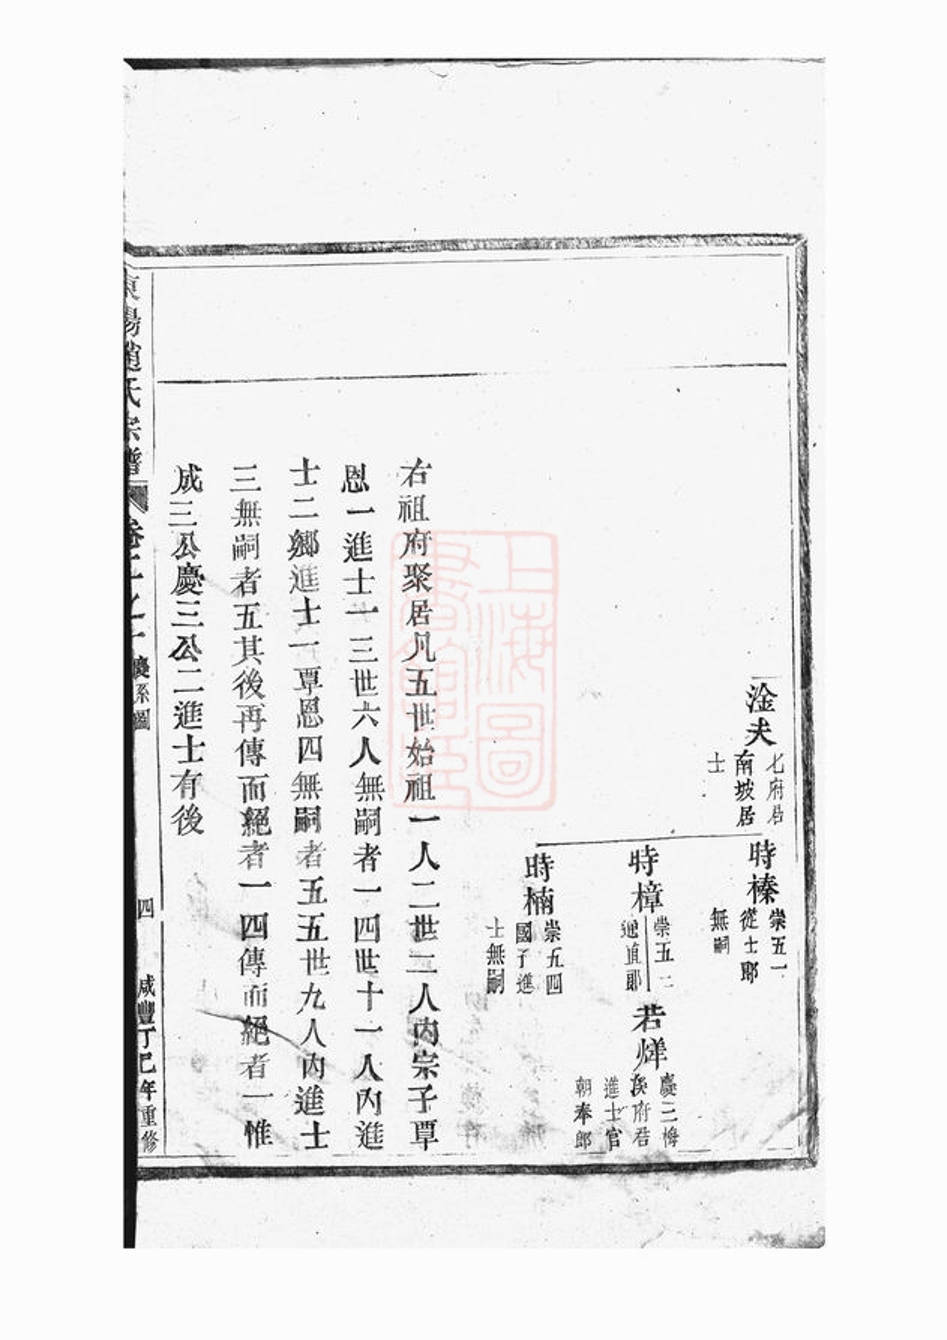 淦夫
七府君
南坡居
士
時榛
崇五一
從士郎
無嗣
時樟
崇五二
通直郎
若烊
慶三梅
溪府君
進士官
朝奉郎
時楠
崇五四
國子進
士無嗣
右祖府聚居凡五世始祖一人二世二人內宗子覃
恩一進士一三世六人無嗣者一四世十一人內進
士二鄉進士一覃恩四無嗣者五五世九人內進士
三無嗣者五其後再傳而絕者一四傳而絕者一惟
成三公慶三公二進士有後
東陽趙氏宗譜
卷二之二
系圖
四
咸豐丁巳年重修
上海圖
書館藏